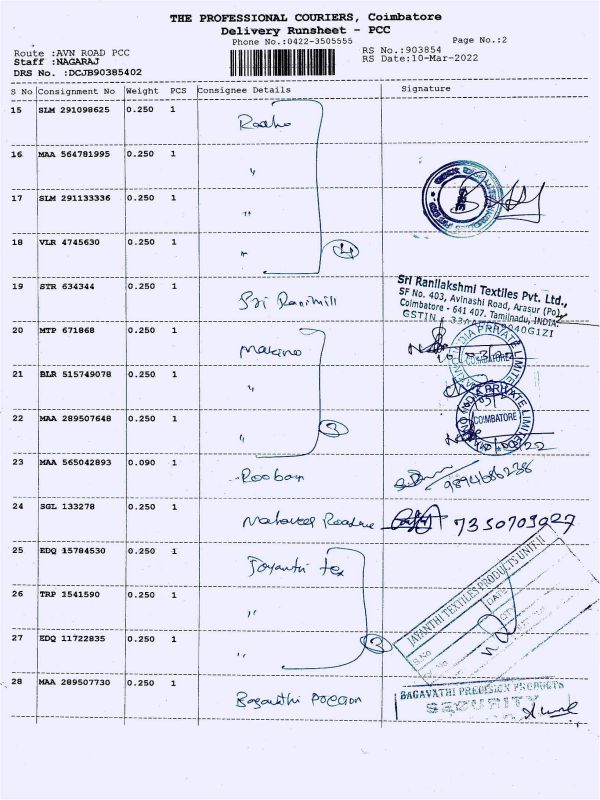 THE PROFESSIONAL COURIERS, Coimbatore
Delivery Runsheet - PCC
Phone No.:0422-3505555 Page No.:2
Route :AVN ROAD PCC RS No.:903854
Staff :NAGARAJ RS Date:10-Mar-2022
DRS No. :DCJB90385402
S No Consignment No Weight PCS Consignee Details Signature
15 SLM 291098625 0.250 1
16 MAA 564781995 0.250 1 "
17 SLM 291133336 0.250 1 "
18 VLR 4745630 0.250 1 " 4
19 STR 634344 0.250 1 Sri Ranimill
Sri Ranilakshmi Textiles Pvt. Ltd.,
SF No. 403, Avinashi Road, Arasur (Po),
Coimbatore - 641 407. Tamilnadu, INDIA.
20 MTP 671868 0.250 1 Makino
COIMBATORE
21 BLR 515749078 0.250 1 "
22 MAA 289507648 0.250 1 " 3
COIMBATORE
23 MAA 565042893 0.090 1 Rooban 9894686238
24 SGL 133278 0.250 1 7350709027
25 EDQ 15784530 0.250 1 Jayanthi tex
JAYANTHI TEXTILES PRODUCTS UNIT II
26 TRP 1541590 0.250 1 "
DATE
S.No
27 EDQ 11722835 0.250 1 " 3
28 MAA 289507730 0.250 1
BAGAVATHI PRECISION PRODUCTS
SECURITY